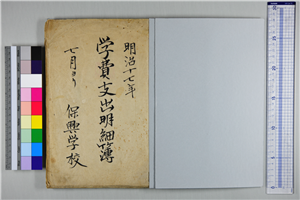 明治十七年
学費支出明細簿
七月ヨリ
保興学校